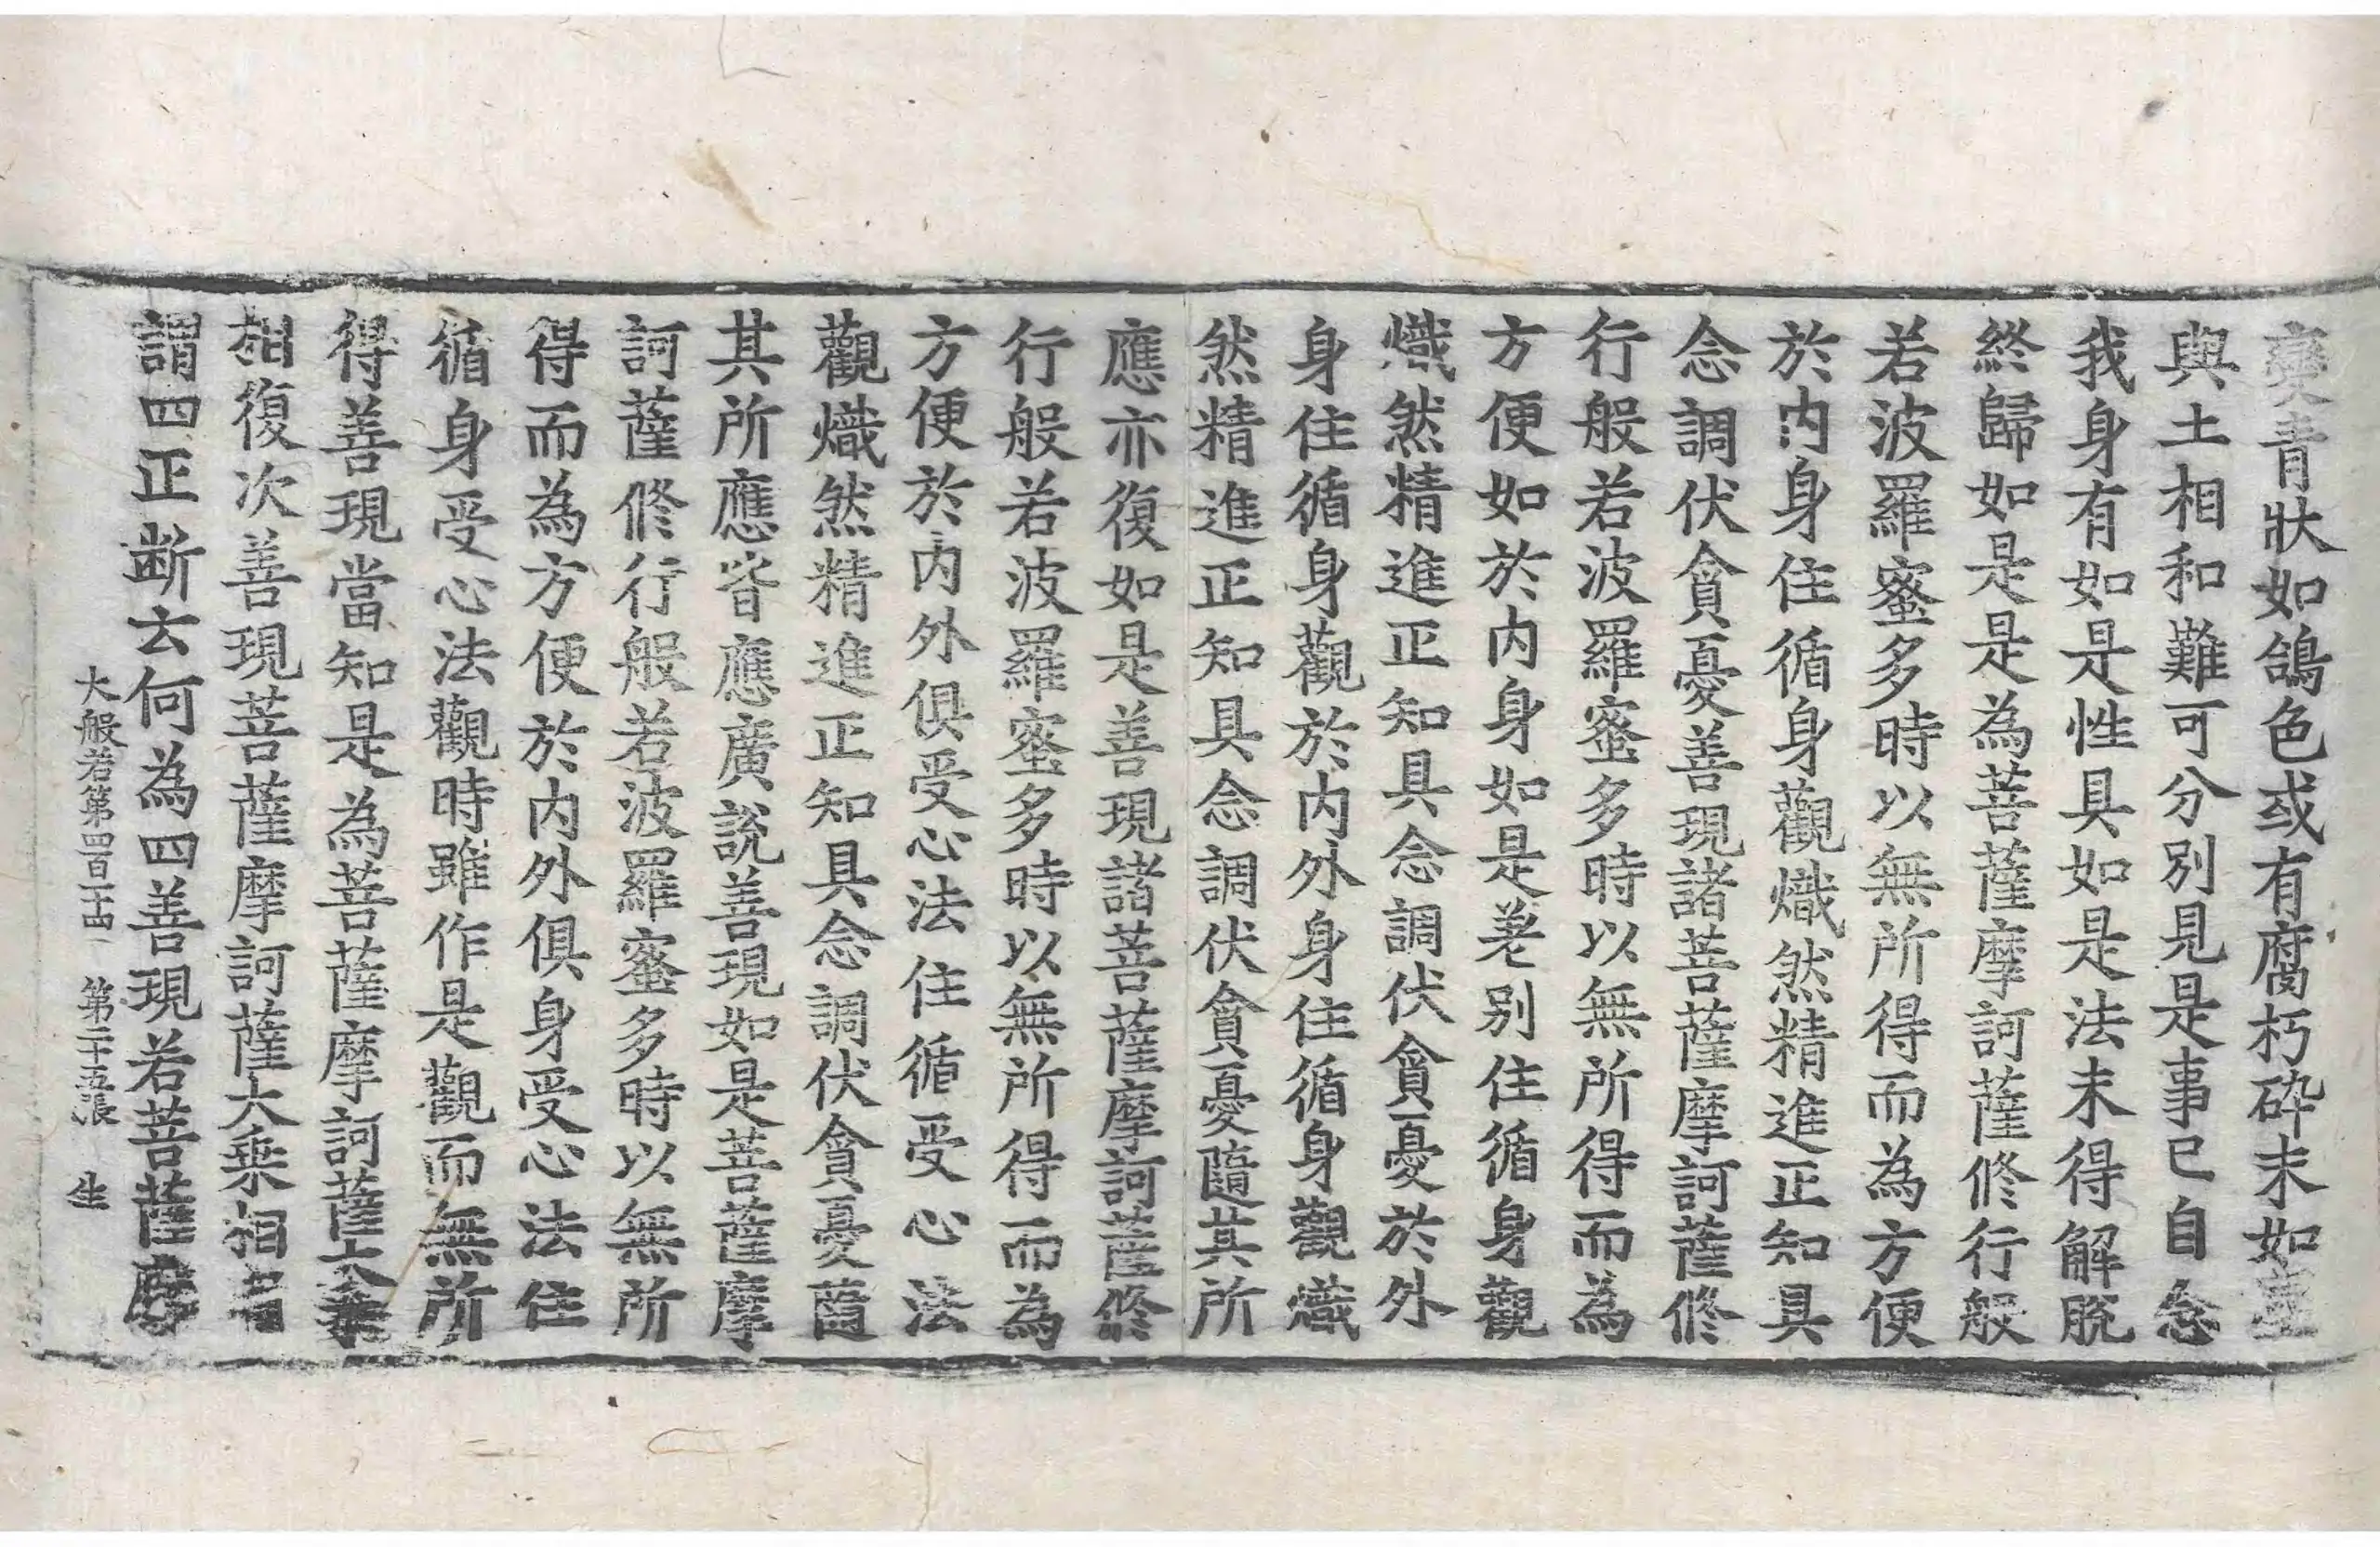 變青狀如鴿色或有腐朽碎末如塵
與土相和難可分別見是事已自念
我身有如是性具如是法未得解脫
終歸如是是為菩薩摩訶薩修行般
若波羅蜜多時以無所得而為方便
於內身住循身觀熾然精進正知具
念調伏貪憂善現諸菩薩摩訶薩修
行般若波羅蜜多時以無所得而為
方便如於內身如是差別住循身觀
熾然精進正知具念調伏貪憂於外
身住循身觀於內外身住循身觀熾
然精進正知具念調伏貪憂隨其所
應亦復如是善現諸菩薩摩訶薩修
行般若波羅蜜多時以無所得而為
方便於內外俱受心法住循受心法
觀熾然精進正知具念調伏貪憂隨
其所應皆應廣說善現如是菩薩摩
訶薩修行般若波羅蜜多時以無所
得而為方便於內外俱身受心法住
循身受心法觀時雖作是觀而無所
得善現當知是為菩薩摩訶薩大乘
相復次善現菩薩摩訶薩大乘相者
謂四正断云何為四善現若菩薩摩
大般若第四百一十四 第二十五張 生